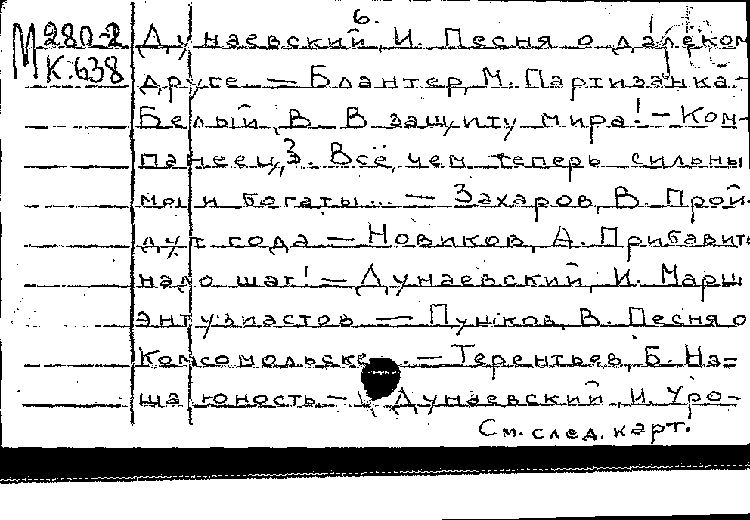 6.
М 280-2 Дунаевский, И. Песня о далеком
К.638 друге — Блантер, М. Партизанка.-
Белый, В. В защиту мира! — Ком-
панеец, З. Всё, чем теперь сильны
мы и богаты... — Захаров, В. Прой-
дут года — Новиков, А. Прибавить
надо шаг! — Дунаевский, И. Марш
энтузиастов — Пушков, В. Песня о
Комсомольске. — Терентьев, Б. На=
ша юность — Дунаевский, И. Уро-
См. след. карт.